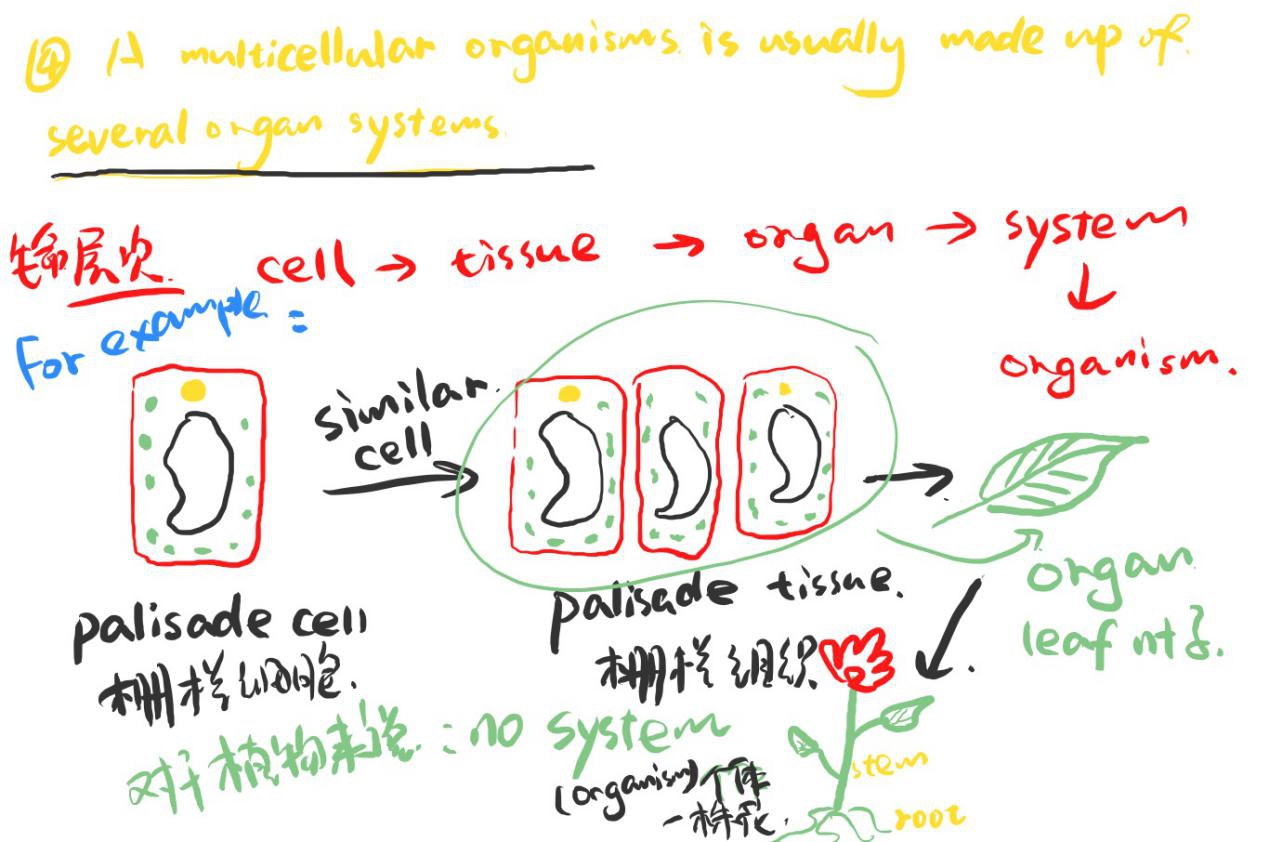 ④ A multicellular organisms. is usually made up of.
several organ systems.
生命层次. cell → tissue → organ → system
↓
organism.
For example:
similar.
cell
palisade cell
栅栏细胞.
palisade tissue.
栅栏组织.
organ
leaf 叶子.
对于植物来说: no system
(organism) 个体
一株花.
stem
root